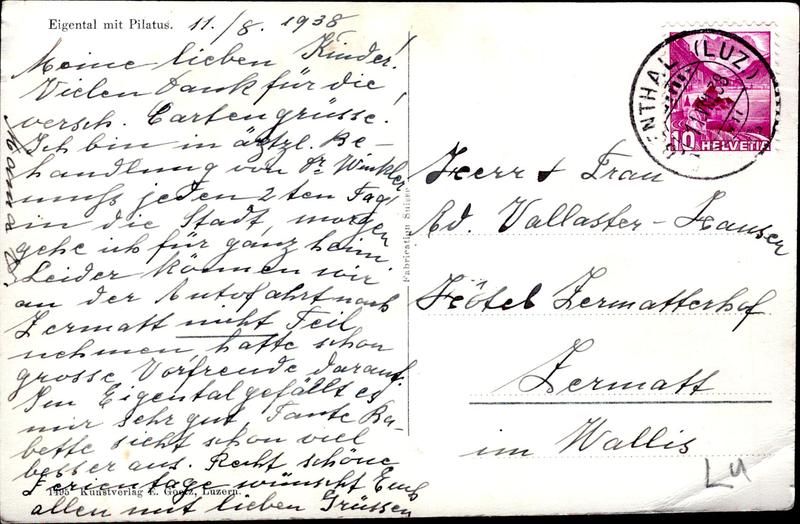 Eigental mit Pilatus. 11./8. 1938
Meine lieben Kinder!
Vielen Dank für die
versch. Cartengrüsse!
Ich bin in ärtzl. Be-
handlung von Dr. Winkler
muss jeden 2ten Tag
in die Stadt, morgen
gehe ich für ganz heim!
Leider können wir
an der Autofahrt nach
Zermatt nicht Teil
nehmen, hatte schon
grosse Vorfreude darauf.
Im Eigental gefällt es
mir sehr gut, Tante Ba-
bette sieht schon viel
besser aus. Recht schöne
Ferientage wünscht Euch
allen mit lieben Grüssen
Mama
1495 Kunstverlag E. Goetz, Luzern.
Fabrication Suisse
ENTHAL (LUZ)
10 HELVETIA
Herr & Frau
Ed. Vallaster-Hansen
Hôtel Zermatterhof
Zermatt
im Wallis
LU